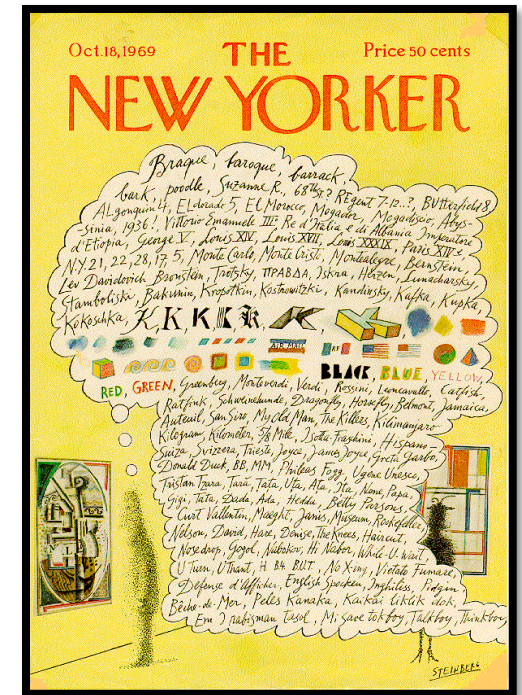 Oct.18,1969
THE
Price 50 cents
NEW YORKER
Braque, baroque, barrack,
bark, poodle, Suzanne R., 68th St? REgent 7-12..?, BUtterfield 8
ALgonquin 4, El dorado 5, El Morocco, Mogador, Mogadiscio, Abys-
-sinia, 1936! Vittorio Emanuele III° Re d'Italia e di Albania Imperatore
d'Etiopia, George V, Louis XIV, Louis XVII, Louis XXXIX, Paris XIVe
N.Y. 21, 22, 28, 17, 5, Monte Carlo, Monte Cristo, Montealegre, Bernstein,
Lev Davidovich Bronstein, Trotsky, ПРАВДА, Iskra, Herzen, Lunacharsky
Stamboliski, Bakunin, Kropotkin, Kostrowitzki, Kandinsky, Kafka, Kupka,
Kokoschka, K, K K K K,
AIR MAIL
BLACK, BLUE, YELLOW,
RED, GREEN, Greenberg, Monteverdi, Verdi, Rossini, Leoncavallo, Catfish,
Ratfink, Schweinehunde, Dragonfly, Horsefly, Belmont, Jamaica,
Auteuil, San Siro, My Old Man, The Killers, Kilimanjaro
Kilogram, Kilometer, 5/8 Mile, Isotta-Fraschini, Hispano-
Suiza, Svizzera, Trieste, Joyce, James Joyce, Greta Garbo,
Donald Duck, BB, MM, Phileas Fogg, Ugene Unesco,
Tristan Tzara, Tara, Tata, Uta, Ata, Ita, Nene, Papa,
Gigi, Tata, Dada, Ada, Hedda, Betty Parsons,
Curt Vallentin, Maeght, Janis, Museum, Rockefeller,
Nelson, David, Hare, Denise, The Knees, Haircut,
Nosedrop, Gogol, Nabokov, Hi Nabor, While-U-Wait,
U Turn, U Thant, H. B4. BUT. No X-ing, Vietato Fumare,
Défense d'Afficher, English Spoken, Inghiliss, Pidgin
Bêche-de-Mer, Peles Kanaka, Kaikai liklik dok,
Em I rabisman tasol, Mi save tok boy, Talkboy, Thinkboy
STEINBERG